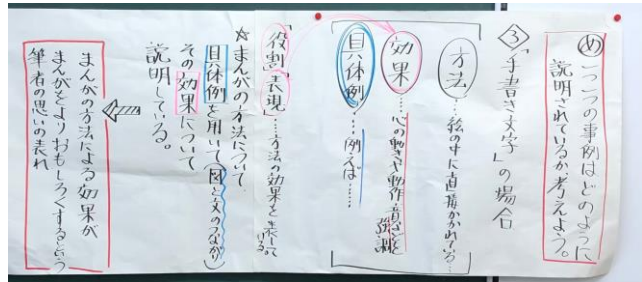 め 一つ一つの事例はどのように
説明されているか、考えよう。
3 「手書き文字」の場合
方法……絵の中に直接かかれている…
効果……心の動きや動作・音などを
強調
具体例……例えば……
「役割」「表現」……方法の効果を表して
いる
☆まんがの方法について
具体例を用いて(図と文のつながり)
その効果について
説明している。
まんがの方法による効果が
まんがをよりおもしろくするという
筆者の思いの表れ